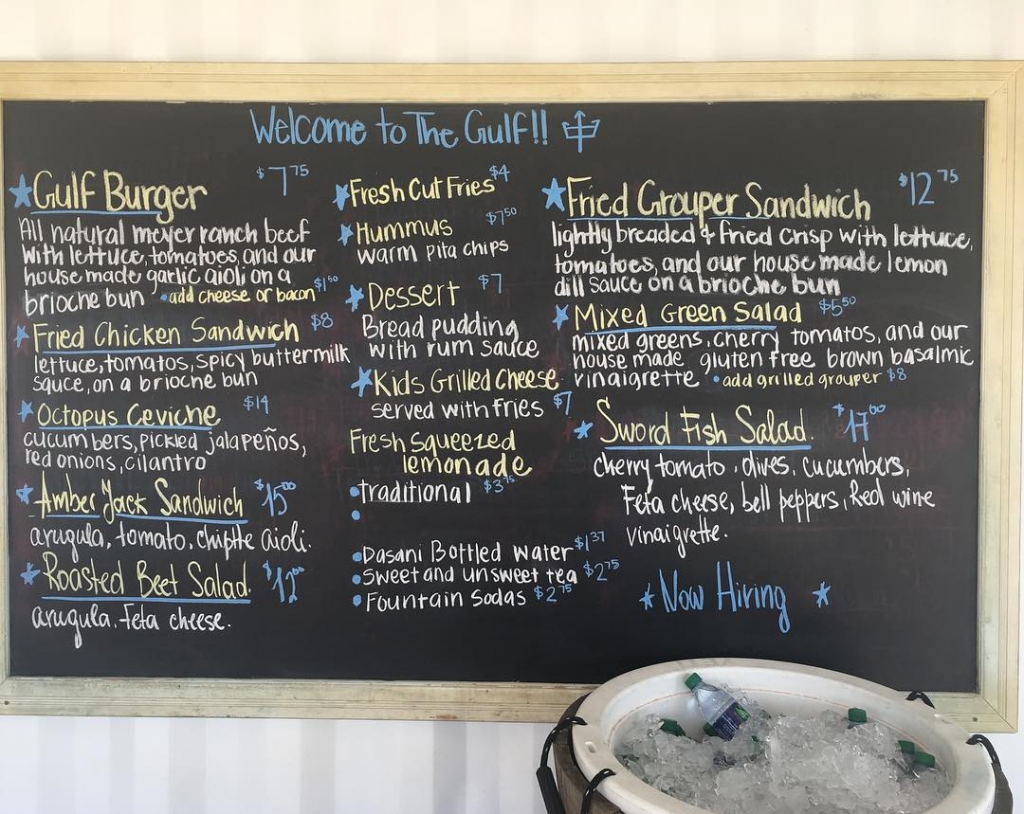 Welcome to The Gulf!!
Gulf Burger $7.75
All natural meyer ranch beef
with lettuce, tomatoes, and our
house made garlic aioli on a
brioche bun • add cheese or bacon $1.50
Fried Chicken Sandwich $8
lettuce, tomatos, spicy buttermilk
sauce, on a brioche bun
Octopus Ceviche $14
cucumbers, pickled jalapeños,
red onions, cilantro
Amber Jack Sandwich $15.00
arugula, tomato, chiptle aioli.
Roasted Beet Salad $12.00
arugula, feta cheese.
Fresh Cut Fries $4
Hummus $7.50
warm pita chips
Dessert $7
Bread pudding
with rum sauce
Kids Grilled Cheese
served with fries $7
Fresh squeezed
lemonade
• traditional $3.75
• Dasani Bottled water $1.37
• Sweet and unsweet tea $2.75
• Fountain Sodas $2.75
Fried Grouper Sandwich $12.75
lightly breaded & fried crisp with lettuce,
tomatoes, and our house made lemon
dill sauce on a brioche bun
Mixed Green Salad $5.50
mixed greens, cherry tomatos, and our
house made gluten free brown basalmic
vinaigrette • add grilled grouper $8
Sword Fish Salad. $17.00
cherry tomato, olives, cucumbers,
Feta cheese, bell peppers, Red wine
vinaigrette.
Now Hiring